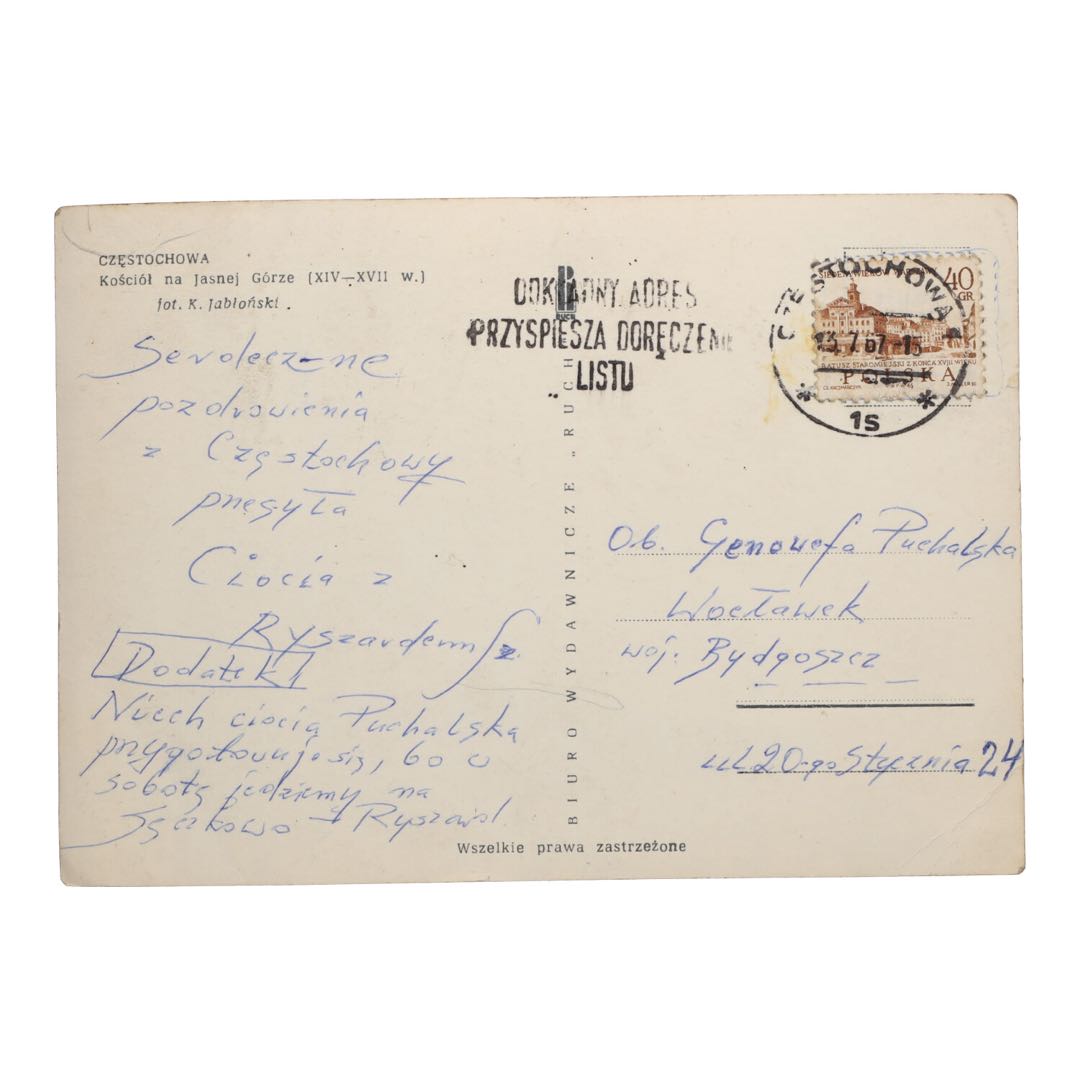 CZĘSTOCHOWA
Kościół na Jasnej Górze (XIV—XVII w.)
fot. K. Jabłoński.
Serdeczne
pozdrowienia
z Częstochowy
przesyła
Ciocia z
Ryszardem Sz.
Dodatek
Niech ciocia Puchalska
przygotowuje się, bo w
sobotę jedziemy na
Ryszard
RUCH
DOKŁADNY ADRES
PRZYSPIESZA DORĘCZENIE
LISTU
BIURO WYDAWNICZE „RUCH"
Wszelkie prawa zastrzeżone
CZĘSTOCHOWA 1
13.7.67-15
1s
40 GR
RATUSZ STAROMIEJSKI Z KOŃCA XVIII WIEKU
POLSKA
Ob. Genowefa Puchalska
Włocławek
woj. Bydgoszcz
ul 20-go Stycznia 24